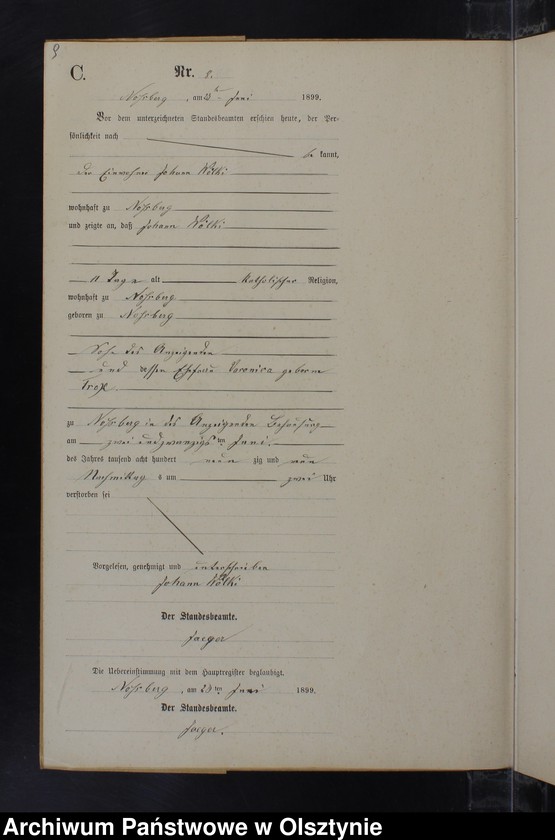 9
C.
Nr. 8.
Noßberg, am 23 ten Juni 1899.
Vor dem unterzeichneten Standesbeamten erschien heute, der Per-
sönlichkeit nach
be kannt,
der Einwohner Johann Wölki
wohnhaft zu Noßberg
und zeigte an, daß Johann Wölki
11 Tage alt katholischer Religion,
wohnhaft zu Noßberg
geboren zu Noßberg
Sohn des Anzeigenden
und dessen Ehefrau Veronica geborne
zu Noßberg in des Anzeigenden Behausung
am zwei und zwanzigsten Juni
des Jahres tausend acht hundert neun zig und neun
Nachmittag s um zwei Uhr
verstorben sei
Vorgelesen, genehmigt und unterschrieben
Johann Wölki
Der Standesbeamte.
Jaeger
Die Uebereinstimmung mit dem Hauptregister beglaubigt.
Noßberg, am 23 ten Juni 1899.
Der Standesbeamte.
Jaeger.
Archiwum Państwowe w Olsztynie